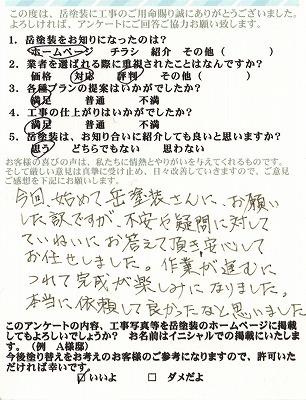 この度は、岳塗装に工事のご用命賜り誠にありがとうございました。
よろしければ、アンケートにご回答ご協力お願い致します。
1. 岳塗装をお知りになったのは？
ホームページ チラシ 紹介 その他（ ）
2. 業者を選ばれる際に重視されたことはなんですか？
価格 対応 評判 その他（ ）
3. 各種プランの提案はいかがでしたか？
満足 普通 不満
4. 工事の仕上がりはいかがでしたか？
満足 普通 不満
5. 岳塗装は、お知り合いに紹介しても良いと思いますか？
思う どちらでもない 思わない
お客様の喜びの声は、私たちに情熱とやりがいを与えてくれるものです。
そして厳しい意見は真摯に受け止め、日々改善していきますので、ご意見
ご感想を下記にお願いします。
今回、始めて岳塗装さんに、お願い
した訳ですが、不安や疑問に対して
ていねいにお答えて頂き安心して
お任せしました。作業が進むに
つれて完成が楽しみになりました。
本当に依頼して良かったなと思いました
このアンケートの内容、工事写真等を岳塗装のホームページに掲載
してもよろしいでしょうか？ お名前はイニシャルでの掲載にいたしま
す。（例 A様邸）
今後塗り替えをお考えのお客様のご参考になりますので、許可いた
だければ幸いです。
☑いいよ □ ダメだよ